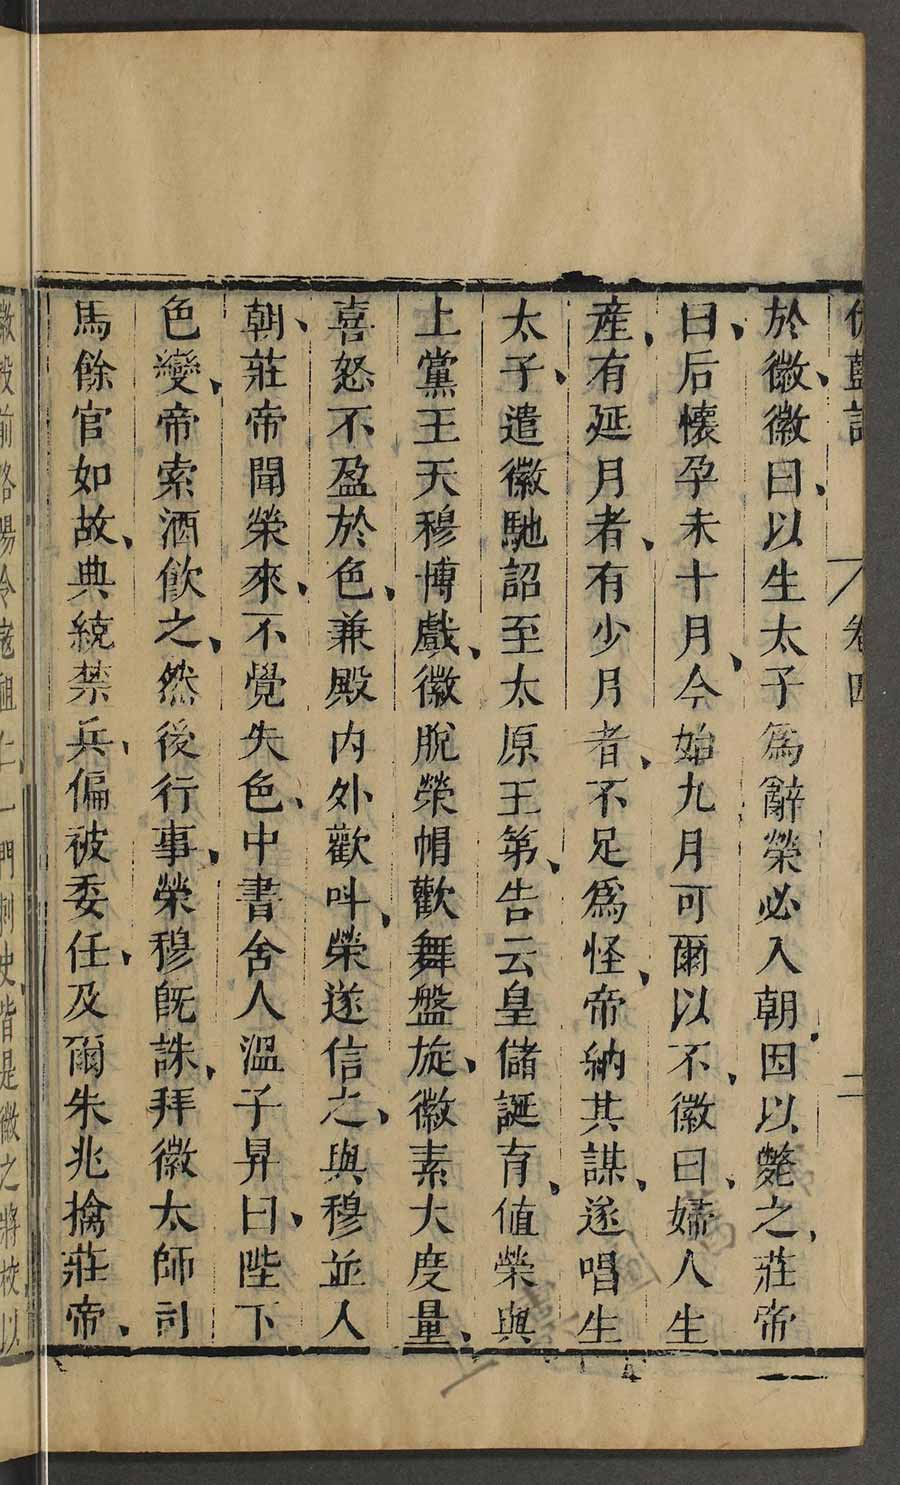 伽藍記 卷四 二
於徽徽曰、以生太子爲辭榮必入朝因以斃之、莊帝
曰、后懷孕未十月、今始九月可爾以不、徽曰、婦人生
産、有延月者、有少月者、不足爲怪、帝納其謀、遂唱生
太子、遣徽馳詔至太原王第、告云皇儲誕育、値榮與
上黨王天穆博戲、徽脫榮帽歡舞盤旋、徽素大度量、
喜怒不盈於色、兼殿内外歡呌、榮遂信之、與穆並入
朝、莊帝聞榮來、不覺失色、中書舍人溫子昇曰、陛下
色變、帝索酒飮之、然後行事、榮穆旣誅、拜徽太師司
馬餘官如故、典統禁兵、偏被委任、及爾朱兆擒莊帝、
徽投前洛陽令寇祖仁、一門刺史皆是徽之將校以